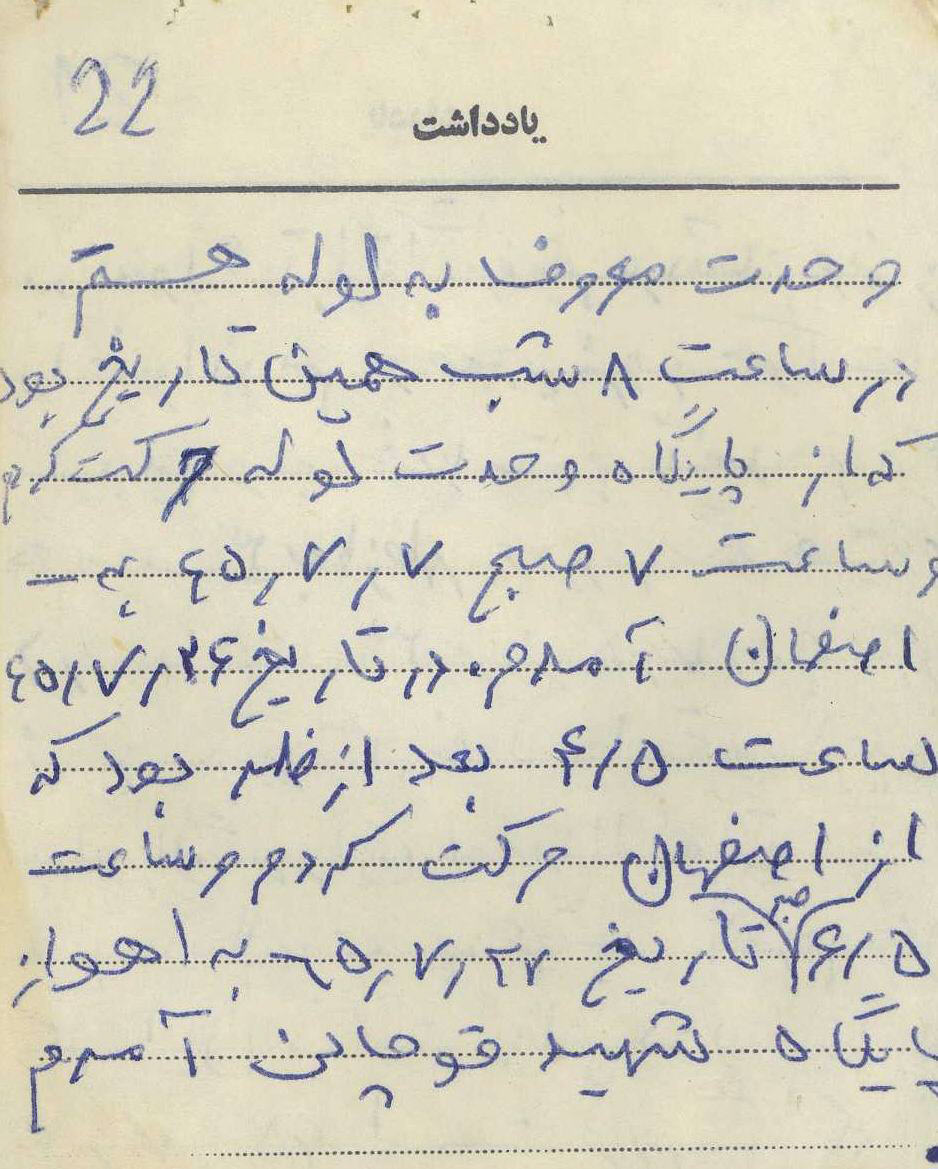 22
یادداشت
وحدت معروف به لوله هستم
در ساعت ۸ شب همین تاریخ بود
که از پایگاه وحدت لوله حرکت کردم
و ساعت ۷ صبح ۶۵٫۷٫۷ به
اصفهان آمدم. در تاریخ ۶۵٫۷٫۲۶
ساعت ۴٫۵ بعد از ظهر بود که
از اصفهان حرکت کردم و ساعت
۶٫۵ صبح تاریخ ۶۵٫۷٫۲۷ به اهواز
پایگاه شهید قوچانی آمدم